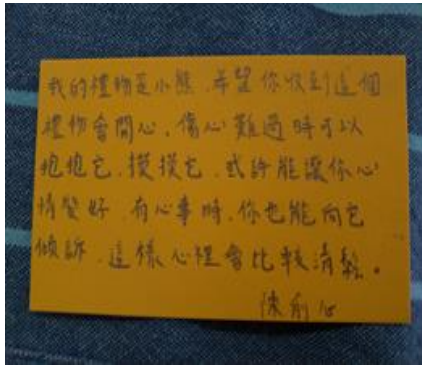 我的禮物是小熊.希望你收到這個
禮物會開心,傷心難過時可以
抱抱它.摸摸它.或許能讓你心
情變好.有心事時.你也能向它
傾訴.這樣心裡會比較清鬆。
陳